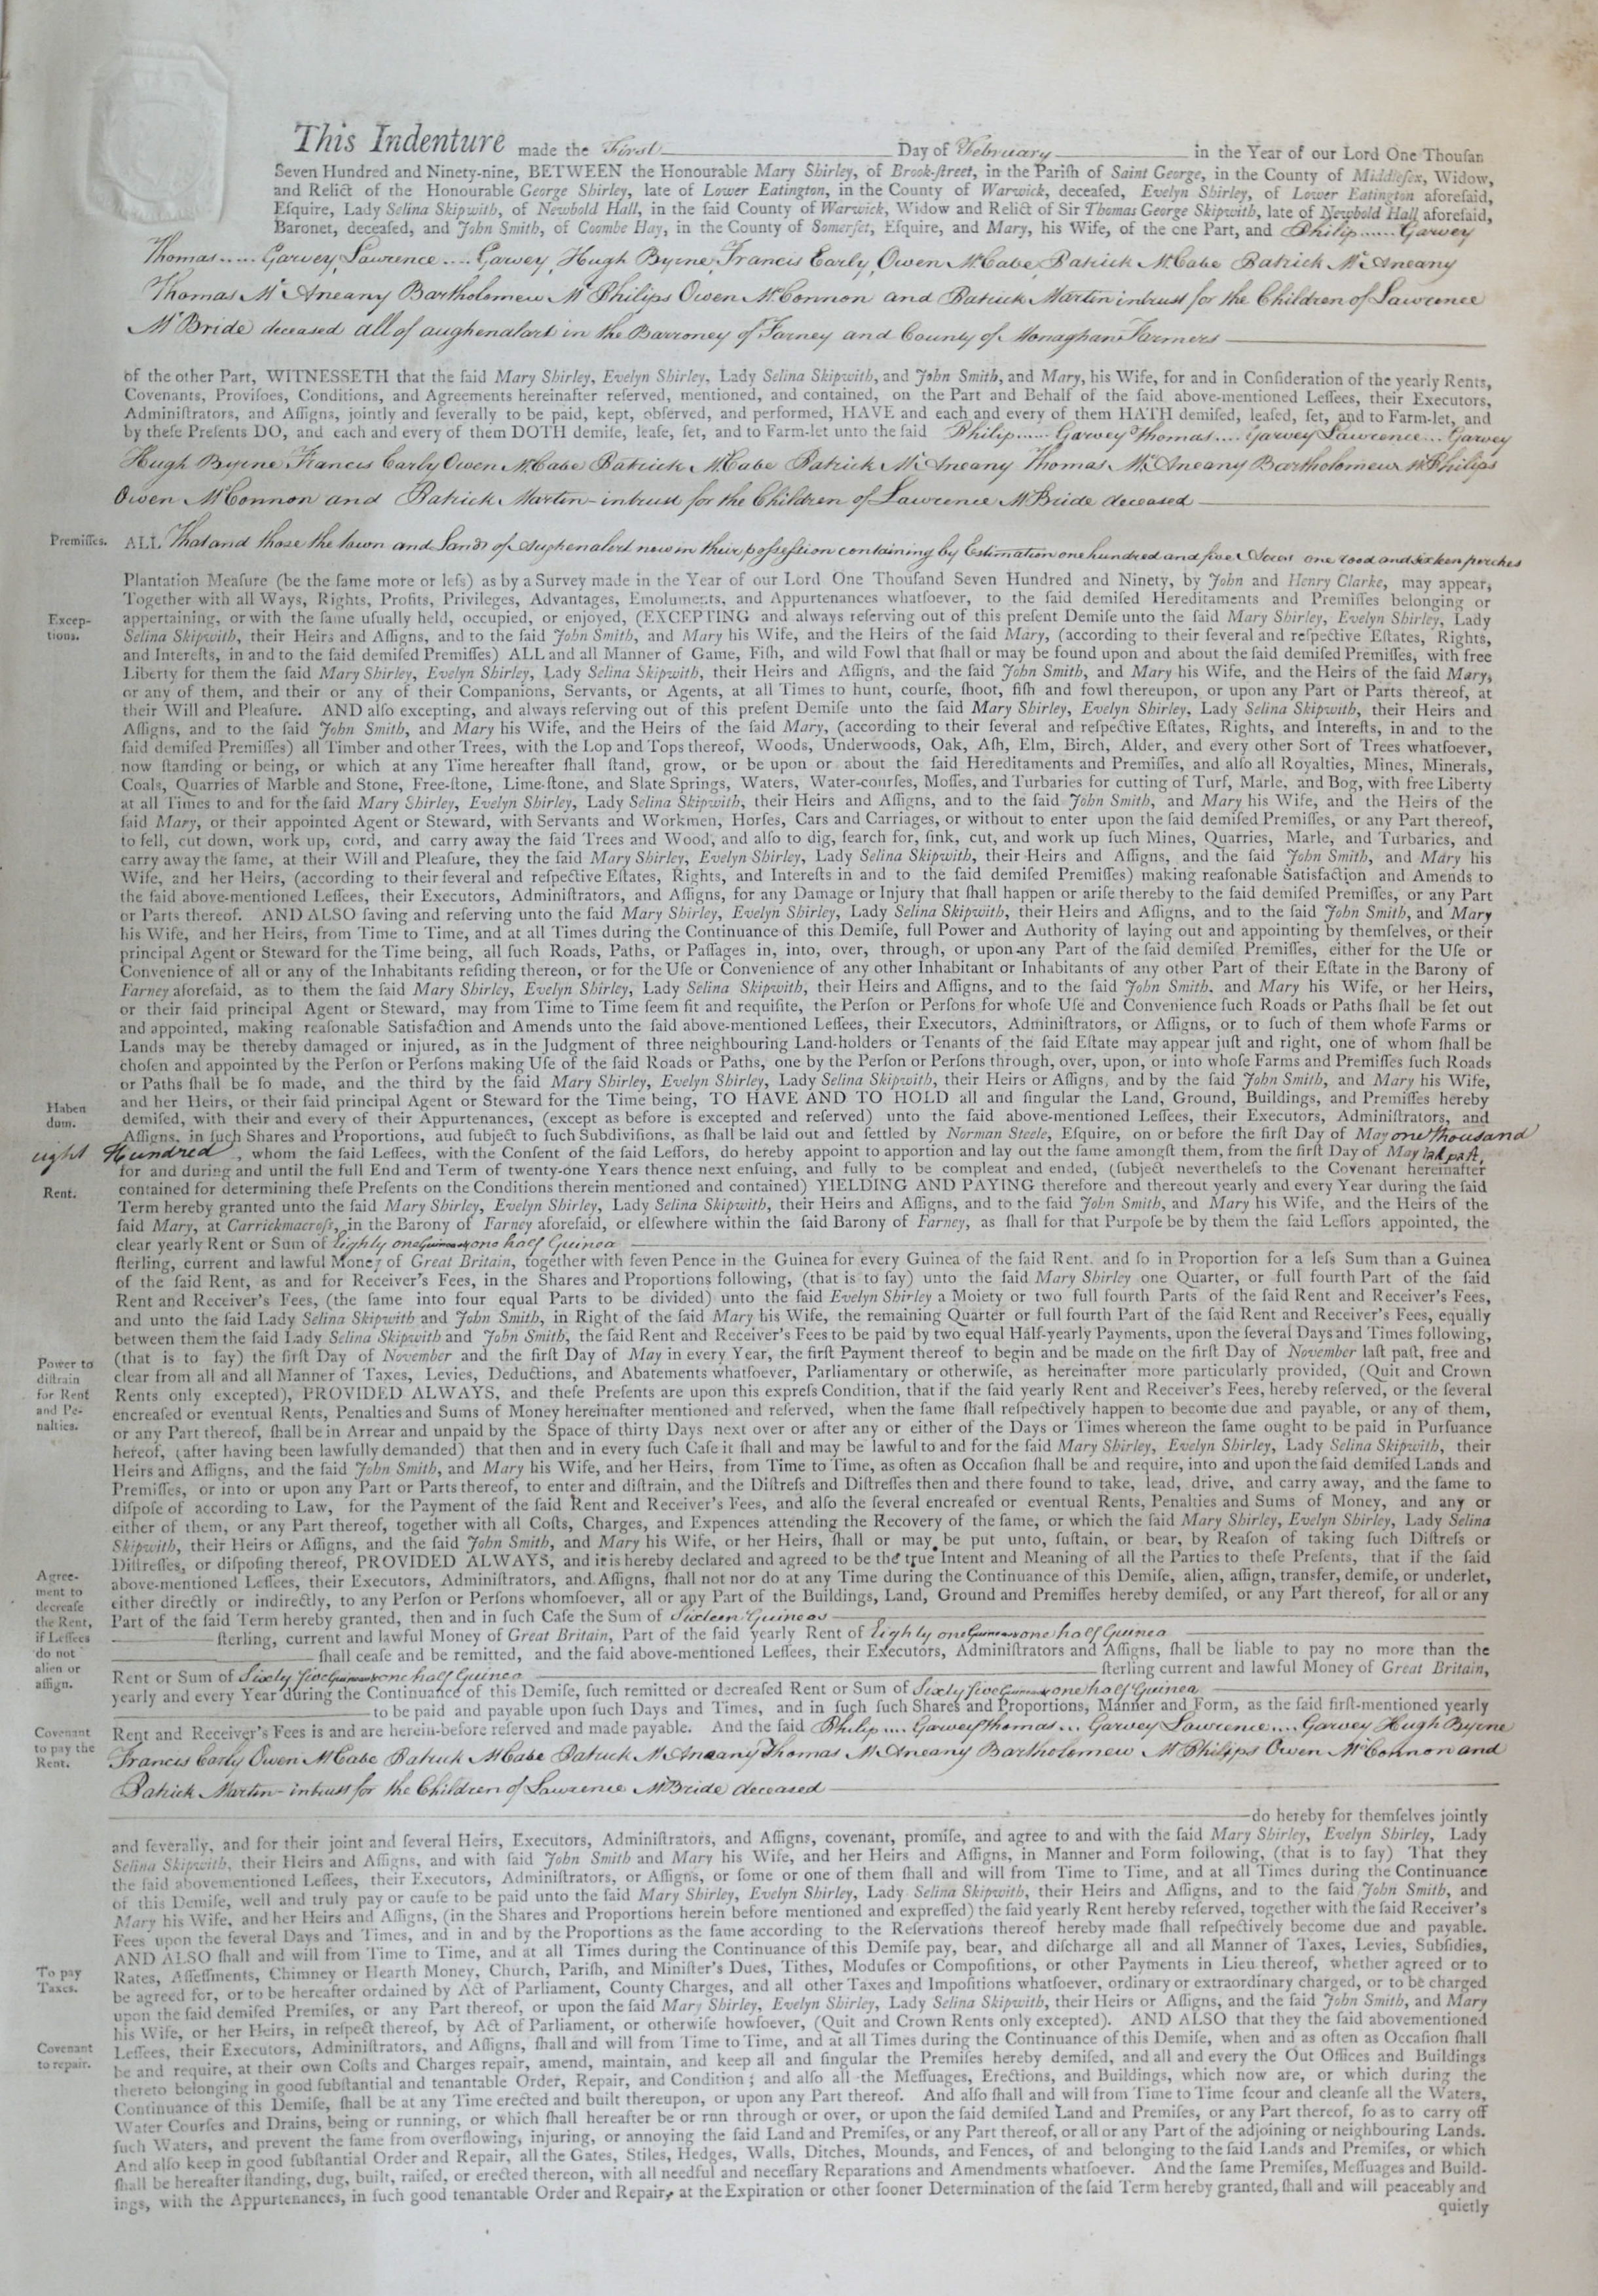 This Indenture made the First Day of February in the Year of our Lord One Thouſan
Seven Hundred and Ninety-nine, BETWEEN the Honourable Mary Shirley, of Brook-ſtreet, in the Pariſh of Saint George, in the County of Middleſex, Widow,
and Relict of the Honourable George Shirley, late of Lower Eatington, in the County of Warwick, deceaſed, Evelyn Shirley, of Lower Eatington aforeſaid,
Eſquire, Lady Selina Skipwith, of Newbold Hall, in the ſaid County of Warwick, Widow and Relict of Sir Thomas George Skipwith, late of Newbold Hall aforeſaid,
Baronet, deceaſed, and John Smith, of Coombe Hay, in the County of Somerſet, Eſquire, and Mary, his Wife, of the one Part, and Philip...... Garvey
Thomas..... Garvey, Lawrence .... Garvey, Hugh Byrne, Francis Early, Owen McCabe, Patrick McCabe Patrick McAneany
Thomas McAneany Bartholomew McPhilips Owen McConnon and Patrick Martin intrust for the Children of Lawrence
McBride deceased all of aughenalart in the Barroney of Farney and County of Monaghan Farmers
of the other Part, WITNESSETH that the ſaid Mary Shirley, Evelyn Shirley, Lady Selina Skipwith, and John Smith, and Mary, his Wife, for and in Conſideration of the yearly Rents,
Covenants, Proviſoes, Conditions, and Agreements hereinafter reſerved, mentioned, and contained, on the Part and Behalf of the ſaid above-mentioned Leſſees, their Executors,
Adminiſtrators, and Aſſigns, jointly and ſeverally to be paid, kept, obſerved, and performed, HAVE and each and every of them HATH demiſed, leaſed, ſet, and to Farm-let, and
by theſe Preſents DO, and each and every of them DOTH demiſe, leaſe, ſet, and to Farm-let unto the ſaid Philip...... Garvey Thomas.... Garvey Lawrence... Garvey
Hugh Byrne Francis Early Owen McCabe Patrick McCabe Patrick McAneany Thomas McAneany Bartholomew McPhilips
Owen McConnon and Patrick Martin - intrust for the Children of Lawrence McBride deceased
Premiſſes. ALL That and those the town and Lands of Aughenalert now in their possession containing by Estimation one hundred and five Acres one rood and sixteen perches
Plantation Meaſure (be the ſame more or leſs) as by a Survey made in the Year of our Lord One Thouſand Seven Hundred and Ninety, by John and Henry Clarke, may appear,
Together with all Ways, Rights, Profits, Privileges, Advantages, Emoluments, and Appurtenances whatſoever, to the ſaid demiſed Hereditaments and Premiſſes belonging or
Excep-
tions.
appertaining, or with the ſame uſually held, occupied, or enjoyed, (EXCEPTING and always reſerving out of this preſent Demiſe unto the ſaid Mary Shirley, Evelyn Shirley, Lady
Selina Skipwith, their Heirs and Aſſigns, and to the ſaid John Smith, and Mary his Wife, and the Heirs of the ſaid Mary, (according to their ſeveral and reſpective Eſtates, Rights,
and Intereſts, in and to the ſaid demiſed Premiſſes) ALL and all Manner of Game, Fiſh, and wild Fowl that ſhall or may be found upon and about the ſaid demiſed Premiſſes, with free
Liberty for them the ſaid Mary Shirley, Evelyn Shirley, Lady Selina Skipwith, their Heirs and Aſſigns, and the ſaid John Smith, and Mary his Wife, and the Heirs of the ſaid Mary,
or any of them, and their or any of their Companions, Servants, or Agents, at all Times to hunt, courſe, ſhoot, fiſh and fowl thereupon, or upon any Part or Parts thereof, at
their Will and Pleaſure. AND alſo excepting, and always reſerving out of this preſent Demiſe unto the ſaid Mary Shirley, Evelyn Shirley, Lady Selina Skipwith, their Heirs and
Aſſigns, and to the ſaid John Smith, and Mary his Wife, and the Heirs of the ſaid Mary, (according to their ſeveral and reſpective Eſtates, Rights, and Intereſts, in and to the
ſaid demiſed Premiſſes) all Timber and other Trees, with the Lop and Tops thereof, Woods, Underwoods, Oak, Aſh, Elm, Birch, Alder, and every other Sort of Trees whatſoever,
now ſtanding or being, or which at any Time hereafter ſhall ſtand, grow, or be upon or about the ſaid Hereditaments and Premiſſes, and alſo all Royalties, Mines, Minerals,
Coals, Quarries of Marble and Stone, Free-ſtone, Lime-ſtone, and Slate Springs, Waters, Water-courſes, Moſſes, and Turbaries for cutting of Turf, Marle, and Bog, with free Liberty
at all Times to and for the ſaid Mary Shirley, Evelyn Shirley, Lady Selina Skipwith, their Heirs and Aſſigns, and to the ſaid John Smith, and Mary his Wife, and the Heirs of the
ſaid Mary, or their appointed Agent or Steward, with Servants and Workmen, Horſes, Cars and Carriages, or without to enter upon the ſaid demiſed Premiſſes, or any Part thereof,
to fell, cut down, work up, cord, and carry away the ſaid Trees and Wood, and alſo to dig, ſearch for, ſink, cut, and work up ſuch Mines, Quarries, Marle, and Turbaries, and
carry away the ſame, at their Will and Pleaſure, they the ſaid Mary Shirley, Evelyn Shirley, Lady Selina Skipwith, their Heirs and Aſſigns, and the ſaid John Smith, and Mary his
Wife, and her Heirs, (according to their ſeveral and reſpective Eſtates, Rights, and Intereſts in and to the ſaid demiſed Premiſſes) making reaſonable Satisfaction and Amends to
the ſaid above-mentioned Leſſees, their Executors, Adminiſtrators, and Aſſigns, for any Damage or Injury that ſhall happen or ariſe thereby to the ſaid demiſed Premiſſes, or any Part
or Parts thereof. AND ALSO ſaving and reſerving unto the ſaid Mary Shirley, Evelyn Shirley, Lady Selina Skipwith, their Heirs and Aſſigns, and to the ſaid John Smith, and Mary
his Wife, and her Heirs, from Time to Time, and at all Times during the Continuance of this Demiſe, full Power and Authority of laying out and appointing by themſelves, or their
principal Agent or Steward for the Time being, all ſuch Roads, Paths, or Paſſages in, into, over, through, or upon any Part of the ſaid demiſed Premiſſes, either for the Uſe or
Convenience of all or any of the Inhabitants reſiding thereon, or for the Uſe or Convenience of any other Inhabitant or Inhabitants of any other Part of their Eſtate in the Barony of
Farney aforeſaid, as to them the ſaid Mary Shirley, Evelyn Shirley, Lady Selina Skipwith, their Heirs and Aſſigns, and to the ſaid John Smith, and Mary his Wife, or her Heirs,
or their ſaid principal Agent or Steward, may from Time to Time ſeem fit and requiſite, the Perſon or Perſons for whoſe Uſe and Convenience ſuch Roads or Paths ſhall be ſet out
and appointed, making reaſonable Satisfaction and Amends unto the ſaid above-mentioned Leſſees, their Executors, Adminiſtrators, or Aſſigns, or to ſuch of them whoſe Farms or
Lands may be thereby damaged or injured, as in the Judgment of three neighbouring Land-holders or Tenants of the ſaid Eſtate may appear juſt and right, one of whom ſhall be
choſen and appointed by the Perſon or Perſons making Uſe of the ſaid Roads or Paths, one by the Perſon or Perſons through, over, upon, or into whoſe Farms and Premiſſes ſuch Roads
or Paths ſhall be ſo made, and the third by the ſaid Mary Shirley, Evelyn Shirley, Lady Selina Skipwith, their Heirs or Aſſigns, and by the ſaid John Smith, and Mary his Wife,
and her Heirs, or their ſaid principal Agent or Steward for the Time being, TO HAVE AND TO HOLD all and ſingular the Land, Ground, Buildings, and Premiſſes hereby
Haben
dum.
demiſed, with their and every of their Appurtenances, (except as before is excepted and reſerved) unto the ſaid above-mentioned Leſſees, their Executors, Adminiſtrators, and
Aſſigns, in ſuch Shares and Proportions, and ſubject to ſuch Subdiviſions, as ſhall be laid out and ſettled by Norman Steele, Eſquire, on or before the firſt Day of May one thousand
eight Hundred, whom the ſaid Leſſees, with the Conſent of the ſaid Leſſors, do hereby appoint to apportion and lay out the ſame amongſt them, from the firſt Day of May laſt paſt,
for and during and until the full End and Term of twenty-one Years thence next enſuing, and fully to be compleat and ended, (ſubject nevertheleſs to the Covenant hereinafter
Rent. contained for determining theſe Preſents on the Conditions therein mentioned and contained) YIELDING AND PAYING therefore and thereout yearly and every Year during the ſaid
Term hereby granted unto the ſaid Mary Shirley, Evelyn Shirley, Lady Selina Skipwith, their Heirs and Aſſigns, and to the ſaid John Smith, and Mary his Wife, and the Heirs of the
ſaid Mary, at Carrickmacroſs, in the Barony of Farney aforeſaid, or elſewhere within the ſaid Barony of Farney, as ſhall for that Purpoſe be by them the ſaid Leſſors appointed, the
clear yearly Rent or Sum of Eighty one Guineas & one half Guinea
ſterling, current and lawful Money of Great Britain, together with ſeven Pence in the Guinea for every Guinea of the ſaid Rent. and ſo in Proportion for a leſs Sum than a Guinea
of the ſaid Rent, as and for Receiver's Fees, in the Shares and Proportions following, (that is to ſay) unto the ſaid Mary Shirley one Quarter, or full fourth Part of the ſaid
Rent and Receiver's Fees, (the ſame into four equal Parts to be divided) unto the ſaid Evelyn Shirley a Moiety or two full fourth Parts of the ſaid Rent and Receiver's Fees,
and unto the ſaid Lady Selina Skipwith and John Smith, in Right of the ſaid Mary his Wife, the remaining Quarter or full fourth Part of the ſaid Rent and Receiver's Fees, equally
between them the ſaid Lady Selina Skipwith and John Smith, the ſaid Rent and Receiver's Fees to be paid by two equal Half-yearly Payments, upon the ſeveral Days and Times following,
(that is to ſay) the firſt Day of November and the firſt Day of May in every Year, the firſt Payment thereof to begin and be made on the firſt Day of November laſt paſt, free and
Power to
diſtrain
for Rent
and Pe-
nalties.
clear from all and all Manner of Taxes, Levies, Deductions, and Abatements whatſoever, Parliamentary or otherwiſe, as hereinafter more particularly provided, (Quit and Crown
Rents only excepted), PROVIDED ALWAYS, and theſe Preſents are upon this expreſs Condition, that if the ſaid yearly Rent and Receiver's Fees, hereby reſerved, or the ſeveral
encreaſed or eventual Rents, Penalties and Sums of Money hereinafter mentioned and reſerved, when the ſame ſhall reſpectively happen to become due and payable, or any of them,
or any Part thereof, ſhall be in Arrear and unpaid by the Space of thirty Days next over or after any or either of the Days or Times whereon the ſame ought to be paid in Purſuance
hereof, (after having been lawfully demanded) that then and in every ſuch Caſe it ſhall and may be lawful to and for the ſaid Mary Shirley, Evelyn Shirley, Lady Selina Skipwith, their
Heirs and Aſſigns, and the ſaid John Smith, and Mary his Wife, and her Heirs, from Time to Time, as often as Occaſion ſhall be and require, into and upon the ſaid demiſed Lands and
Premiſſes, or into or upon any Part or Parts thereof, to enter and diſtrain, and the Diſtreſs and Diſtreſſes then and there found to take, lead, drive, and carry away, and the ſame to
diſpoſe of according to Law, for the Payment of the ſaid Rent and Receiver's Fees, and alſo the ſeveral encreaſed or eventual Rents, Penalties and Sums of Money, and any or
either of them, or any Part thereof, together with all Coſts, Charges, and Expences attending the Recovery of the ſame, or which the ſaid Mary Shirley, Evelyn Shirley, Lady Selina
Skipwith, their Heirs or Aſſigns, and the ſaid John Smith, and Mary his Wife, or her Heirs, ſhall or may be put unto, ſuſtain, or bear, by Reaſon of taking ſuch Diſtreſs or
Diſtreſſes, or diſpoſing thereof, PROVIDED ALWAYS, and it is hereby declared and agreed to be the true Intent and Meaning of all the Parties to theſe Preſents, that if the ſaid
Agree-
ment to
decreaſe
the Rent,
if Leſſees
do not
alien or
aſſign.
above-mentioned Leſſees, their Executors, Adminiſtrators, and Aſſigns, ſhall not nor do at any Time during the Continuance of this Demiſe, alien, aſſign, transfer, demiſe, or underlet,
either directly or indirectly, to any Perſon or Perſons whomſoever, all or any Part of the Buildings, Land, Ground and Premiſſes hereby demiſed, or any Part thereof, for all or any
Part of the ſaid Term hereby granted, then and in ſuch Caſe the Sum of Sixteen Guineas
ſterling, current and lawful Money of Great Britain, Part of the ſaid yearly Rent of Eighty one Guineas & one half Guinea
ſhall ceaſe and be remitted, and the ſaid above-mentioned Leſſees, their Executors, Adminiſtrators and Aſſigns, ſhall be liable to pay no more than the
Rent or Sum of Sixty five Guineas & one half Guinea ſterling current and lawful Money of Great Britain,
yearly and every Year during the Continuance of this Demiſe, ſuch remitted or decreaſed Rent or Sum of Sixty five Guineas & one half Guinea
to be paid and payable upon ſuch Days and Times, and in ſuch ſuch Shares and Proportions, Manner and Form, as the ſaid firſt-mentioned yearly
Covenant
to pay the
Rent.
Rent and Receiver's Fees is and are herein-before reſerved and made payable. And the ſaid Philip.... Garvey Thomas... Garvey Lawrence.... Garvey Hugh Byrne
Francis Early Owen McCabe Patrick McCabe Patrick McAneany Thomas McAneany Bartholomew McPhilips Owen McConnon and
Patrick Martin - intrust for the Children of Lawrence McBride deceased
do hereby for themſelves jointly
and ſeverally, and for their joint and ſeveral Heirs, Executors, Adminiſtrators, and Aſſigns, covenant, promiſe, and agree to and with the ſaid Mary Shirley, Evelyn Shirley, Lady
Selina Skipwith, their Heirs and Aſſigns, and with ſaid John Smith and Mary his Wife, and her Heirs and Aſſigns, in Manner and Form following, (that is to ſay) That they
the ſaid abovementioned Leſſees, their Executors, Adminiſtrators, or Aſſigns, or ſome or one of them ſhall and will from Time to Time, and at all Times during the Continuance
of this Demiſe, well and truly pay or cauſe to be paid unto the ſaid Mary Shirley, Evelyn Shirley, Lady Selina Skipwith, their Heirs and Aſſigns, and to the ſaid John Smith, and
Mary his Wife, and her Heirs and Aſſigns, (in the Shares and Proportions herein before mentioned and expreſſed) the ſaid yearly Rent hereby reſerved, together with the ſaid Receiver's
Fees upon the ſeveral Days and Times, and in and by the Proportions as the ſame according to the Reſervations thereof hereby made ſhall reſpectively become due and payable.
AND ALSO ſhall and will from Time to Time, and at all Times during the Continuance of this Demiſe pay, bear, and diſcharge all and all Manner of Taxes, Levies, Subſidies,
To pay
Taxes.
Rates, Aſſeſſments, Chimney or Hearth Money, Church, Pariſh, and Miniſter's Dues, Tithes, Moduſes or Compoſitions, or other Payments in Lieu thereof, whether agreed or to
be agreed for, or to be hereafter ordained by Act of Parliament, County Charges, and all other Taxes and Impoſitions whatſoever, ordinary or extraordinary charged, or to be charged
upon the ſaid demiſed Premiſes, or any Part thereof, or upon the ſaid Mary Shirley, Evelyn Shirley, Lady Selina Skipwith, their Heirs or Aſſigns, and the ſaid John Smith, and Mary
his Wife, or her Heirs, in reſpect thereof, by Act of Parliament, or otherwiſe howſoever, (Quit and Crown Rents only excepted). AND ALSO that they the ſaid abovementioned
Covenant
to repair.
Leſſees, their Executors, Adminiſtrators, and Aſſigns, ſhall and will from Time to Time, and at all Times during the Continuance of this Demiſe, when and as often as Occaſion ſhall
be and require, at their own Coſts and Charges repair, amend, maintain, and keep all and ſingular the Premiſes hereby demiſed, and all and every the Out Offices and Buildings
thereto belonging in good ſubſtantial and tenantable Order, Repair, and Condition; and alſo all the Meſſuages, Erections, and Buildings, which now are, or which during the
Continuance of this Demiſe, ſhall be at any Time erected and built thereupon, or upon any Part thereof. And alſo ſhall and will from Time to Time ſcour and cleanſe all the Waters,
Water Courſes and Drains, being or running, or which ſhall hereafter be or run through or over, or upon the ſaid demiſed Land and Premiſes, or any Part thereof, ſo as to carry off
ſuch Waters, and prevent the ſame from overflowing, injuring, or annoying the ſaid Land and Premiſes, or any Part thereof, or all or any Part of the adjoining or neighbouring Lands.
And alſo keep in good ſubſtantial Order and Repair, all the Gates, Stiles, Hedges, Walls, Ditches, Mounds, and Fences, of and belonging to the ſaid Lands and Premiſes, or which
ſhall be hereafter ſtanding, dug, built, raiſed, or erected thereon, with all needful and neceſſary Reparations and Amendments whatſoever. And the ſame Premiſes, Meſſuages and Build-
ings, with the Appurtenances, in ſuch good tenantable Order and Repair, at the Expiration or other ſooner Determination of the ſaid Term hereby granted, ſhall and will peaceably and
quietly